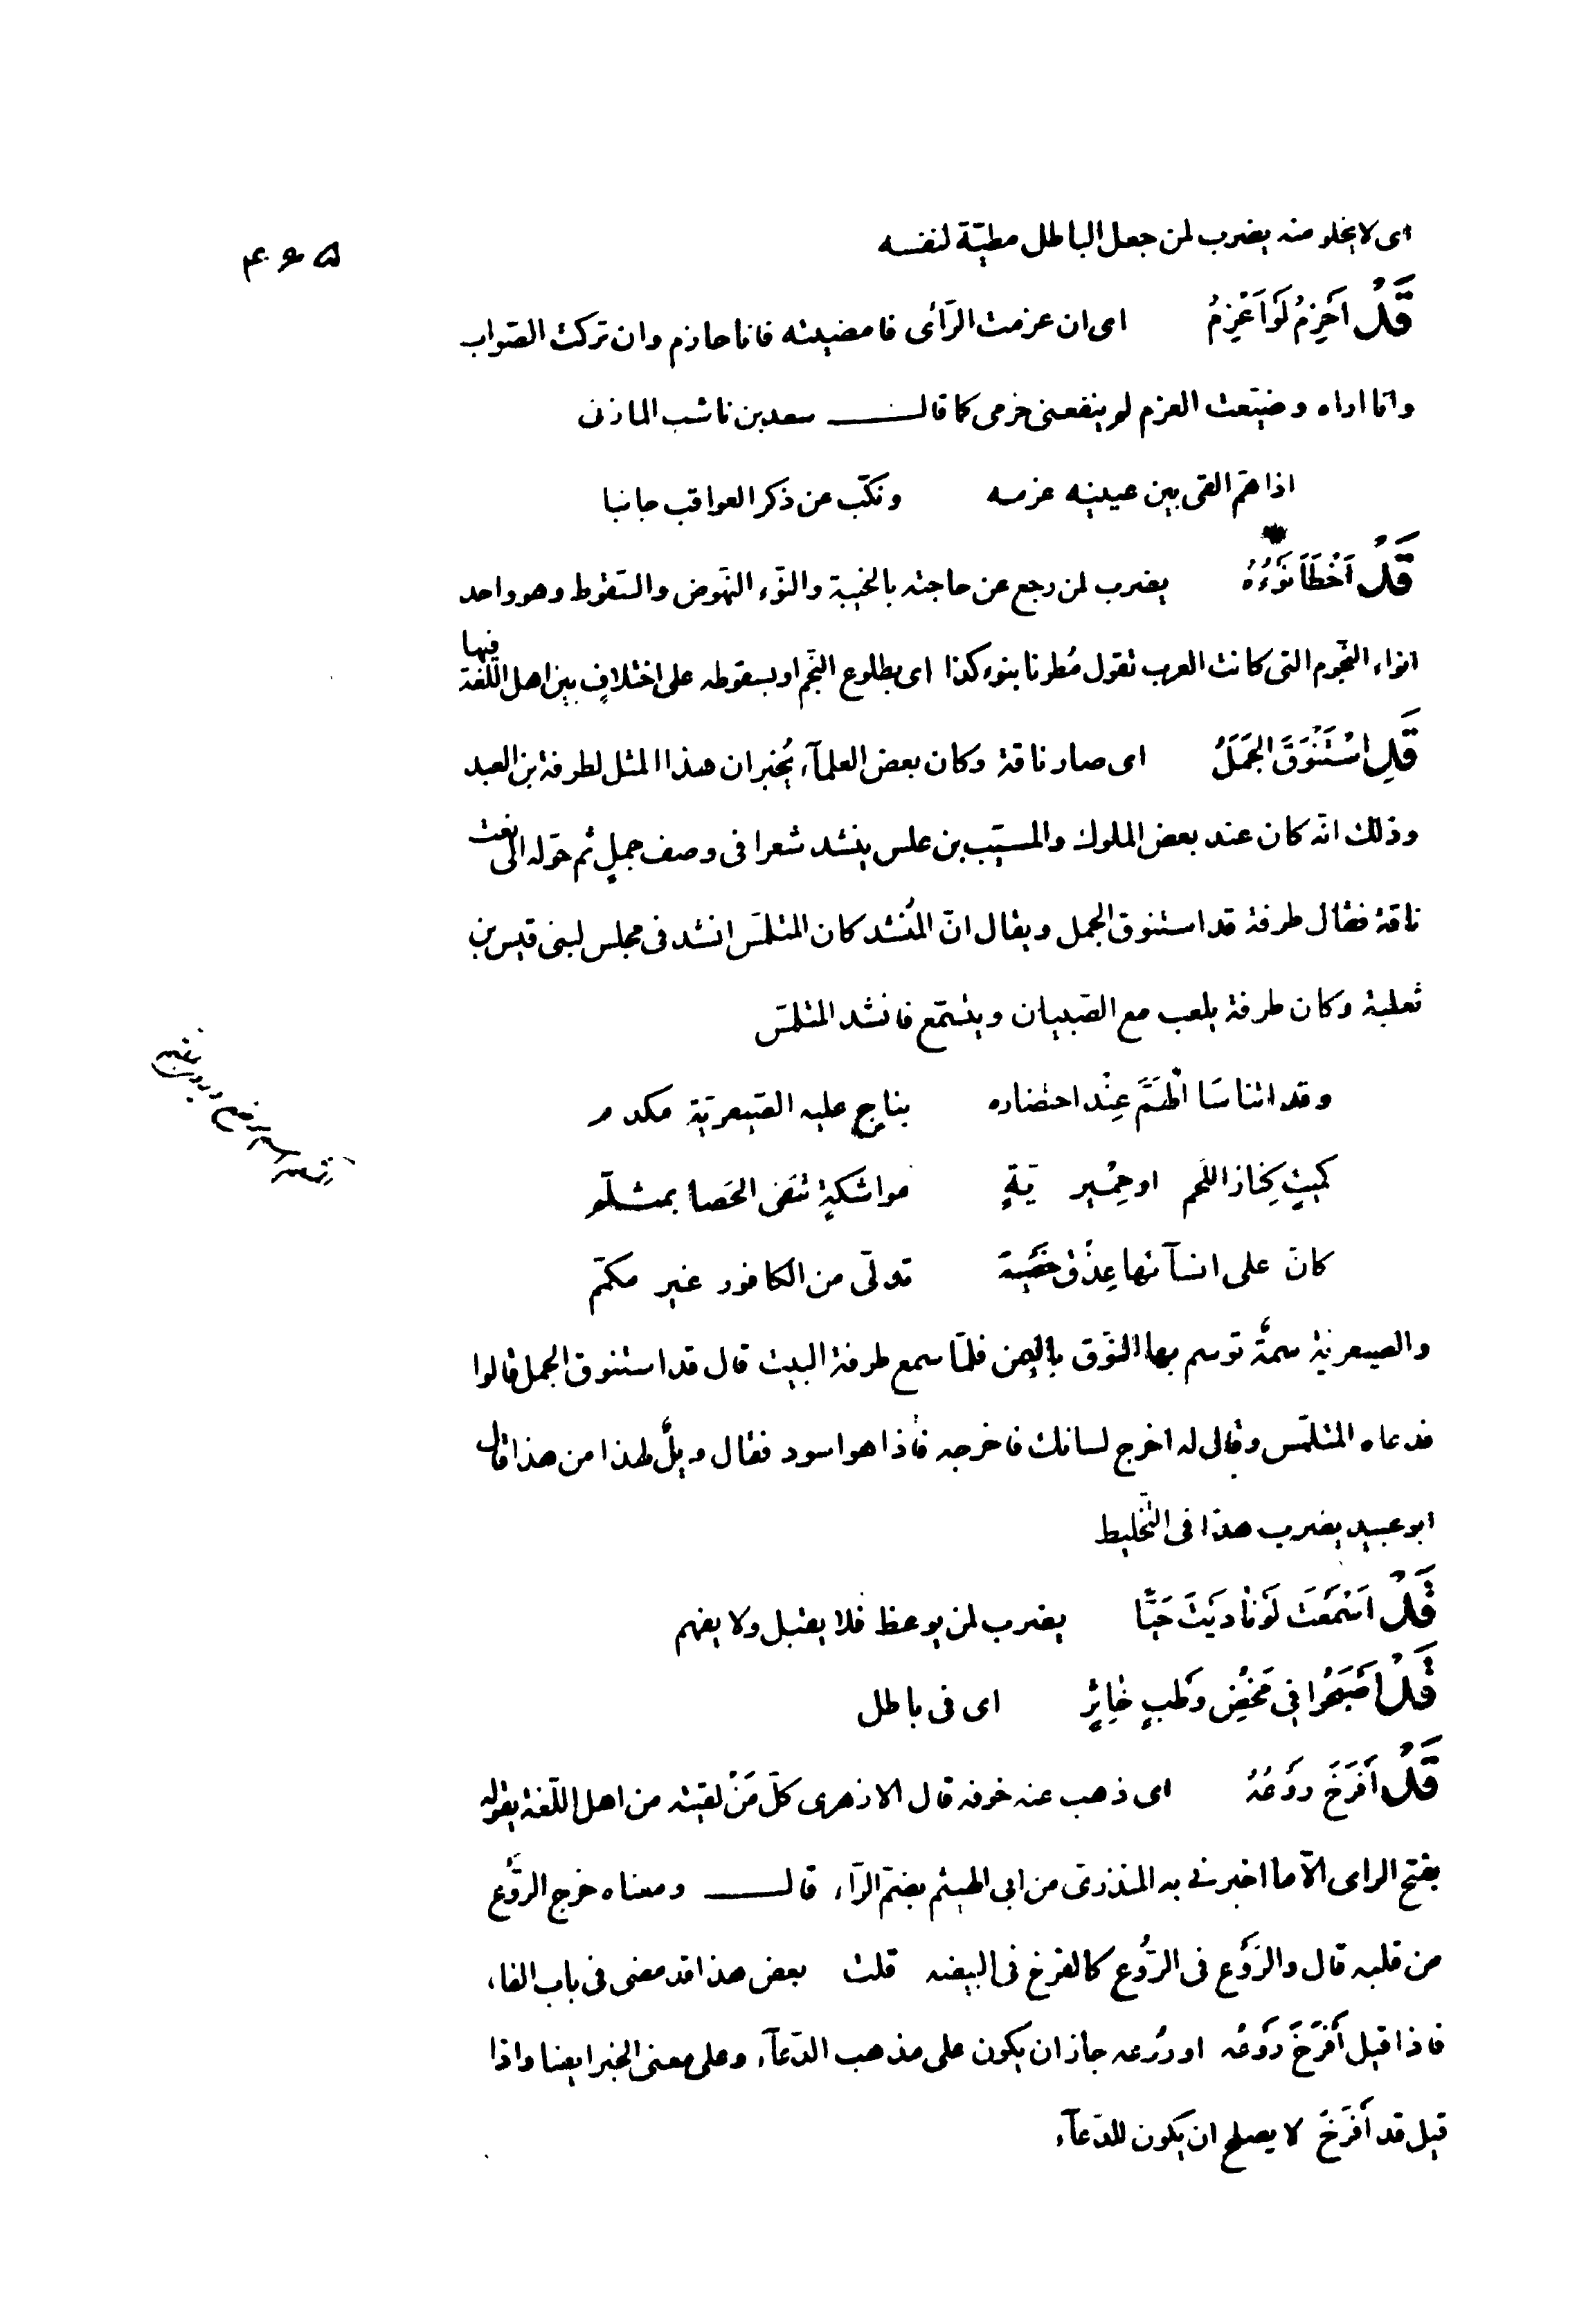 اى لا يخلو منه يضرب لمن جعل الباطل مطيّة لنفسه
قَدْ اَحْزِمُ لَوْ اَعْزِمُ اى ان عزمت الرّأى فامضيته فانا حازم وان تركت الصّواب
وانا اراه وضيّعت العزم لم ينفعنى حزمى كما قال سعد بن ناشب المازنى
اذا همّ القى بين عينيه عزمه ونكّب عن ذكر العواقب جانبا
قَدْ اَخْطَاَ نَوْءُهُ يضرب لمن رجع عن حاجته بالخيبة والنّوء النّهوض والسّقوط وهو واحد
انواء النّجوم التى كانت العرب تقول مُطرنا بنوء كذا اى بطلوع النّجم او بسقوطه على اختلافٍ بين اهل اللّغة فيها
قَدِ اسْتَنْوَقَ الْجَمَلُ اى صار ناقة وكان بعض العلمآء يُخبر ان هذا المثل لطرفة بن العبد
وذلك انّه كان عند بعض الملوك والمسيّب بن علس ينشد شعرا فى وصف جملٍ ثم حوّله الى نعت
ناقة فقال طرفة قد استنوق الجمل ويقال انّ المُنشد كان المتلمّس انشد فى مجلس لبنى قيس بن
ثعلبة وكان طرفة يلعب مع الصّبيان ويتسمّع فانشد المتلمّس
وقد اتناسَا الْهَمَّ عِنْد احتضاره بناجٍ عليه الصّيعريّة مكدم
كميتٍ كِناز اللّحم او حِمْيريّةٍ مواشكةٍ تنفى الحَصا بمثلّم
كانّ على انسآئها عِذْق خَصْبة تدلّى من الكافور غير مكمّم
والصيعرية سمةٌ توسم بها النّوق باليمن فلمّا سمع طرفة البيت قال قد استنوق الجمل قالوا
فدعاه المتلمّس وقال له اخرج لسانك فاخرجه فاذا هو اسود فقال ويلٌ لهذا من هذا قال
ابو عبيد يضرب هذا فى التّخليط
قَدْ اَسْمَعْتَ لَوْ نَادَيْتَ حَيًّا يضرب لمن يوعظ فلا يقبل ولا يفهم
قَدْ اَصْبَحُوا فِى مَخْضِ وَطْبٍ خَاثِرٍ اى فى باطل
قَدْ اَفْرَخَ رَوْعُهُ اى ذهب عنه خوفه قال الازهرى كلّ مَنْ لقيته من اهل اللّغة يقوله
بفتح الراى الّا ما اخبرنى به المنذرى من ابى الهيثم بضمّ الرّآء قال ومعناه خرج الرَّوْع
من قلبه قال والرَوْع فى الرُّوع كالفرخ فى البيضه قلت بعض هذا قد مضى فى باب الفاء
فاذا قيل اَفْرَخَ رَوْعُه او رُوعه جاز ان يكون على مذهب الدّعآء وعلى معنى الخبر ايضا واذا
قيل قد اَفْرَخَ لا يصلح ان يكون للدّعآء